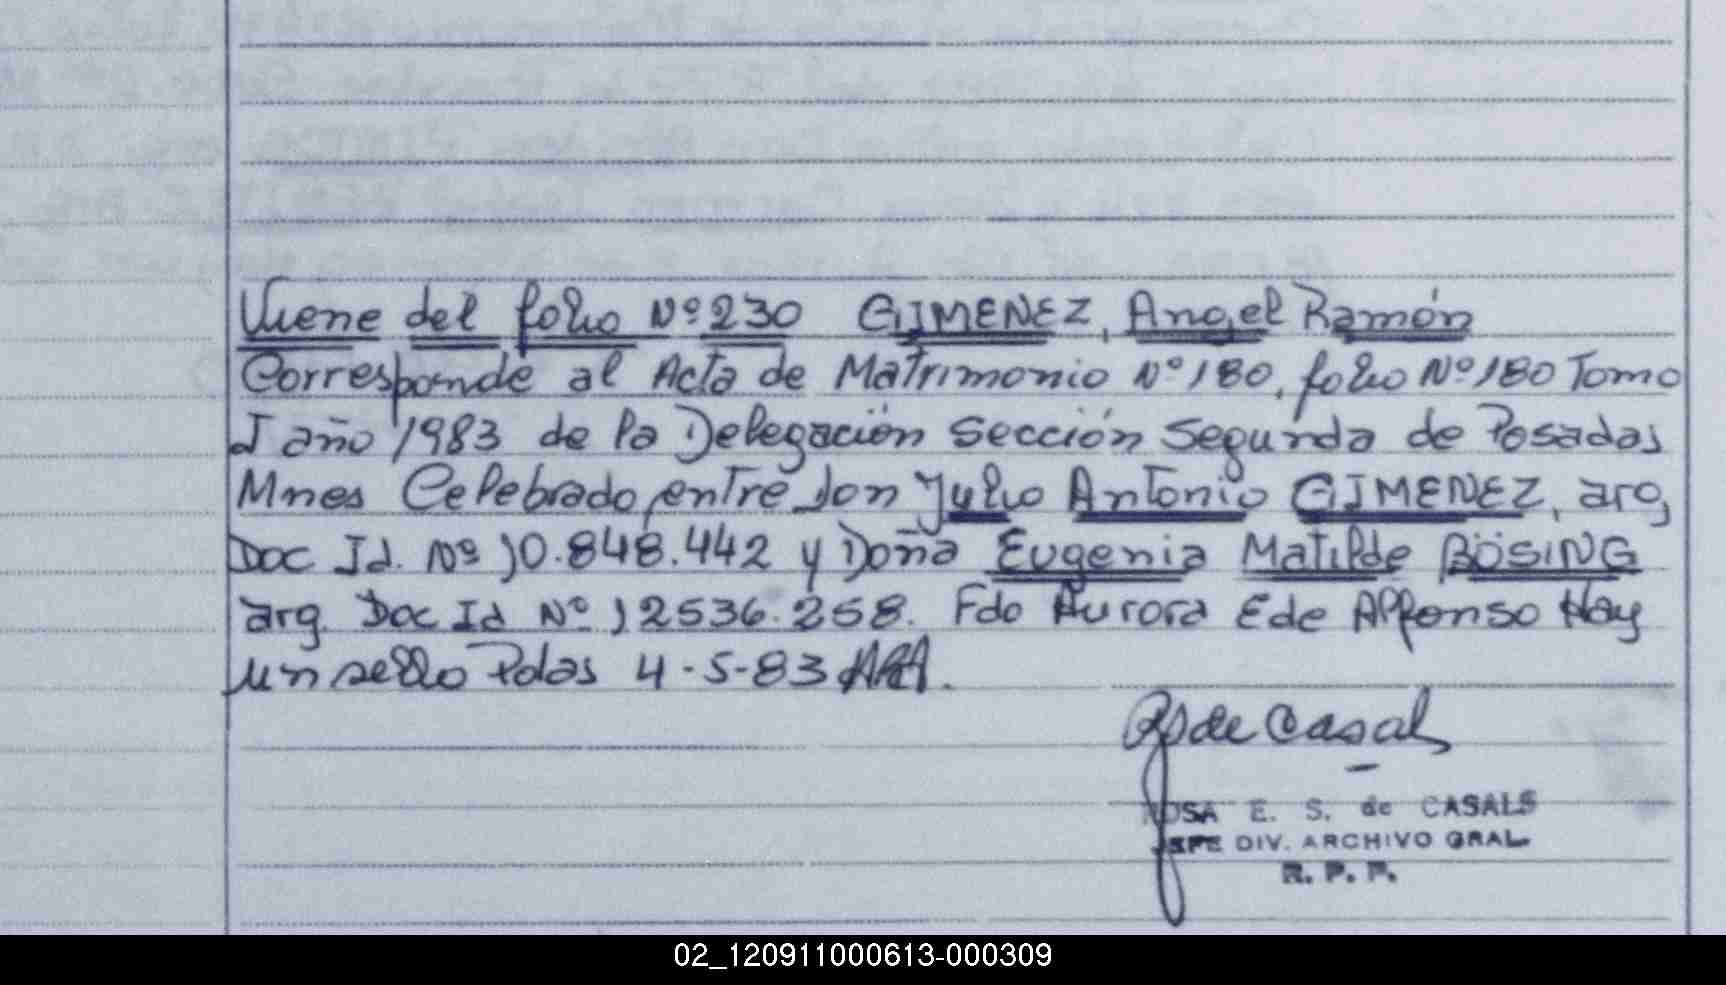 Viene del folio Nº 230 GIMENEZ, Angel Ramón
Corresponde al Acta de Matrimonio Nº 180, folio Nº 180 Tomo
I año 1983 de la Delegación Sección Segunda de Posadas
Mnes Celebrado entre Don Julio Antonio GIMENEZ, arg,
Doc Id. Nº 10.848.442 y Doña Eugenia Matilde BÖSING
arg. Doc Id Nº 12536.258. Fdo Aurora E de Alfonso Hay
un sello Pdas 4-5-83
R S de Casals
ROSA E. S. de CASALS
JEFE DIV. ARCHIVO GRAL.
R. P. P.
02_120911000613-000309